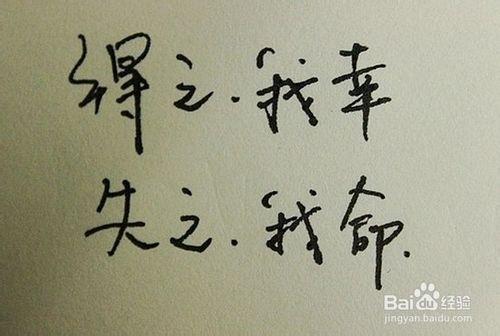 得之.我幸
失之.我命.
Baidu经验
jingyan.baidu.com